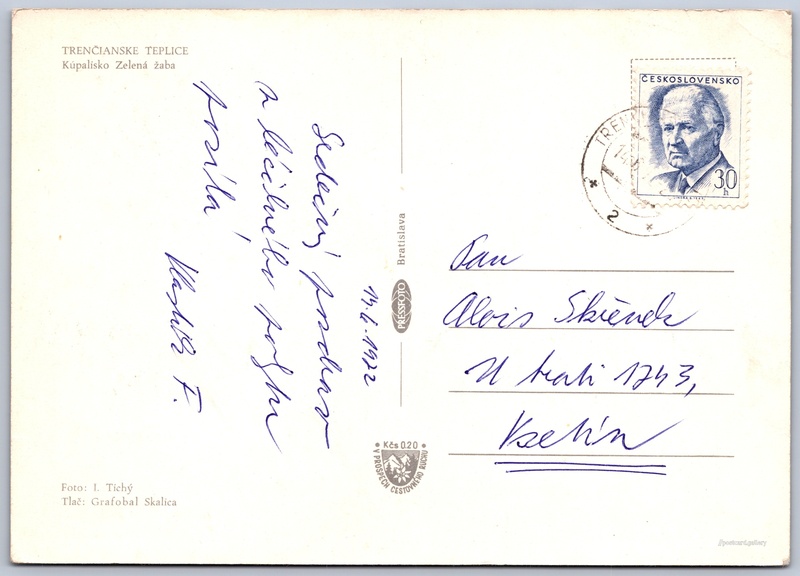 TRENČIANSKE TEPLICE
Kúpalisko Zelená žaba
Srdečný pozdrav
z léčebného pobytu
posílá
Vlastík F.
14.6.1972
Foto: I. Tichý
Tlač: Grafobal Skalica
Bratislava
PRESSFOTO
Kčs 0.20
V PROSPECH CESTOVNÉHO RUCHU
ČESKOSLOVENSKO
30
h
TREN
2
Pan
Alois Skřenek
U trati 1743,
Vsetín
//postcard.gallery